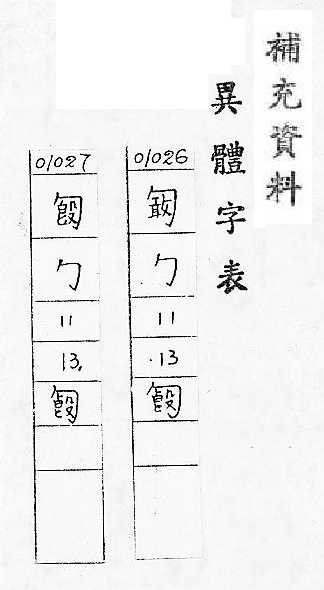 補充資料
異體字表
01026
勹
11
13
匓
01027
勹
11
13
匓